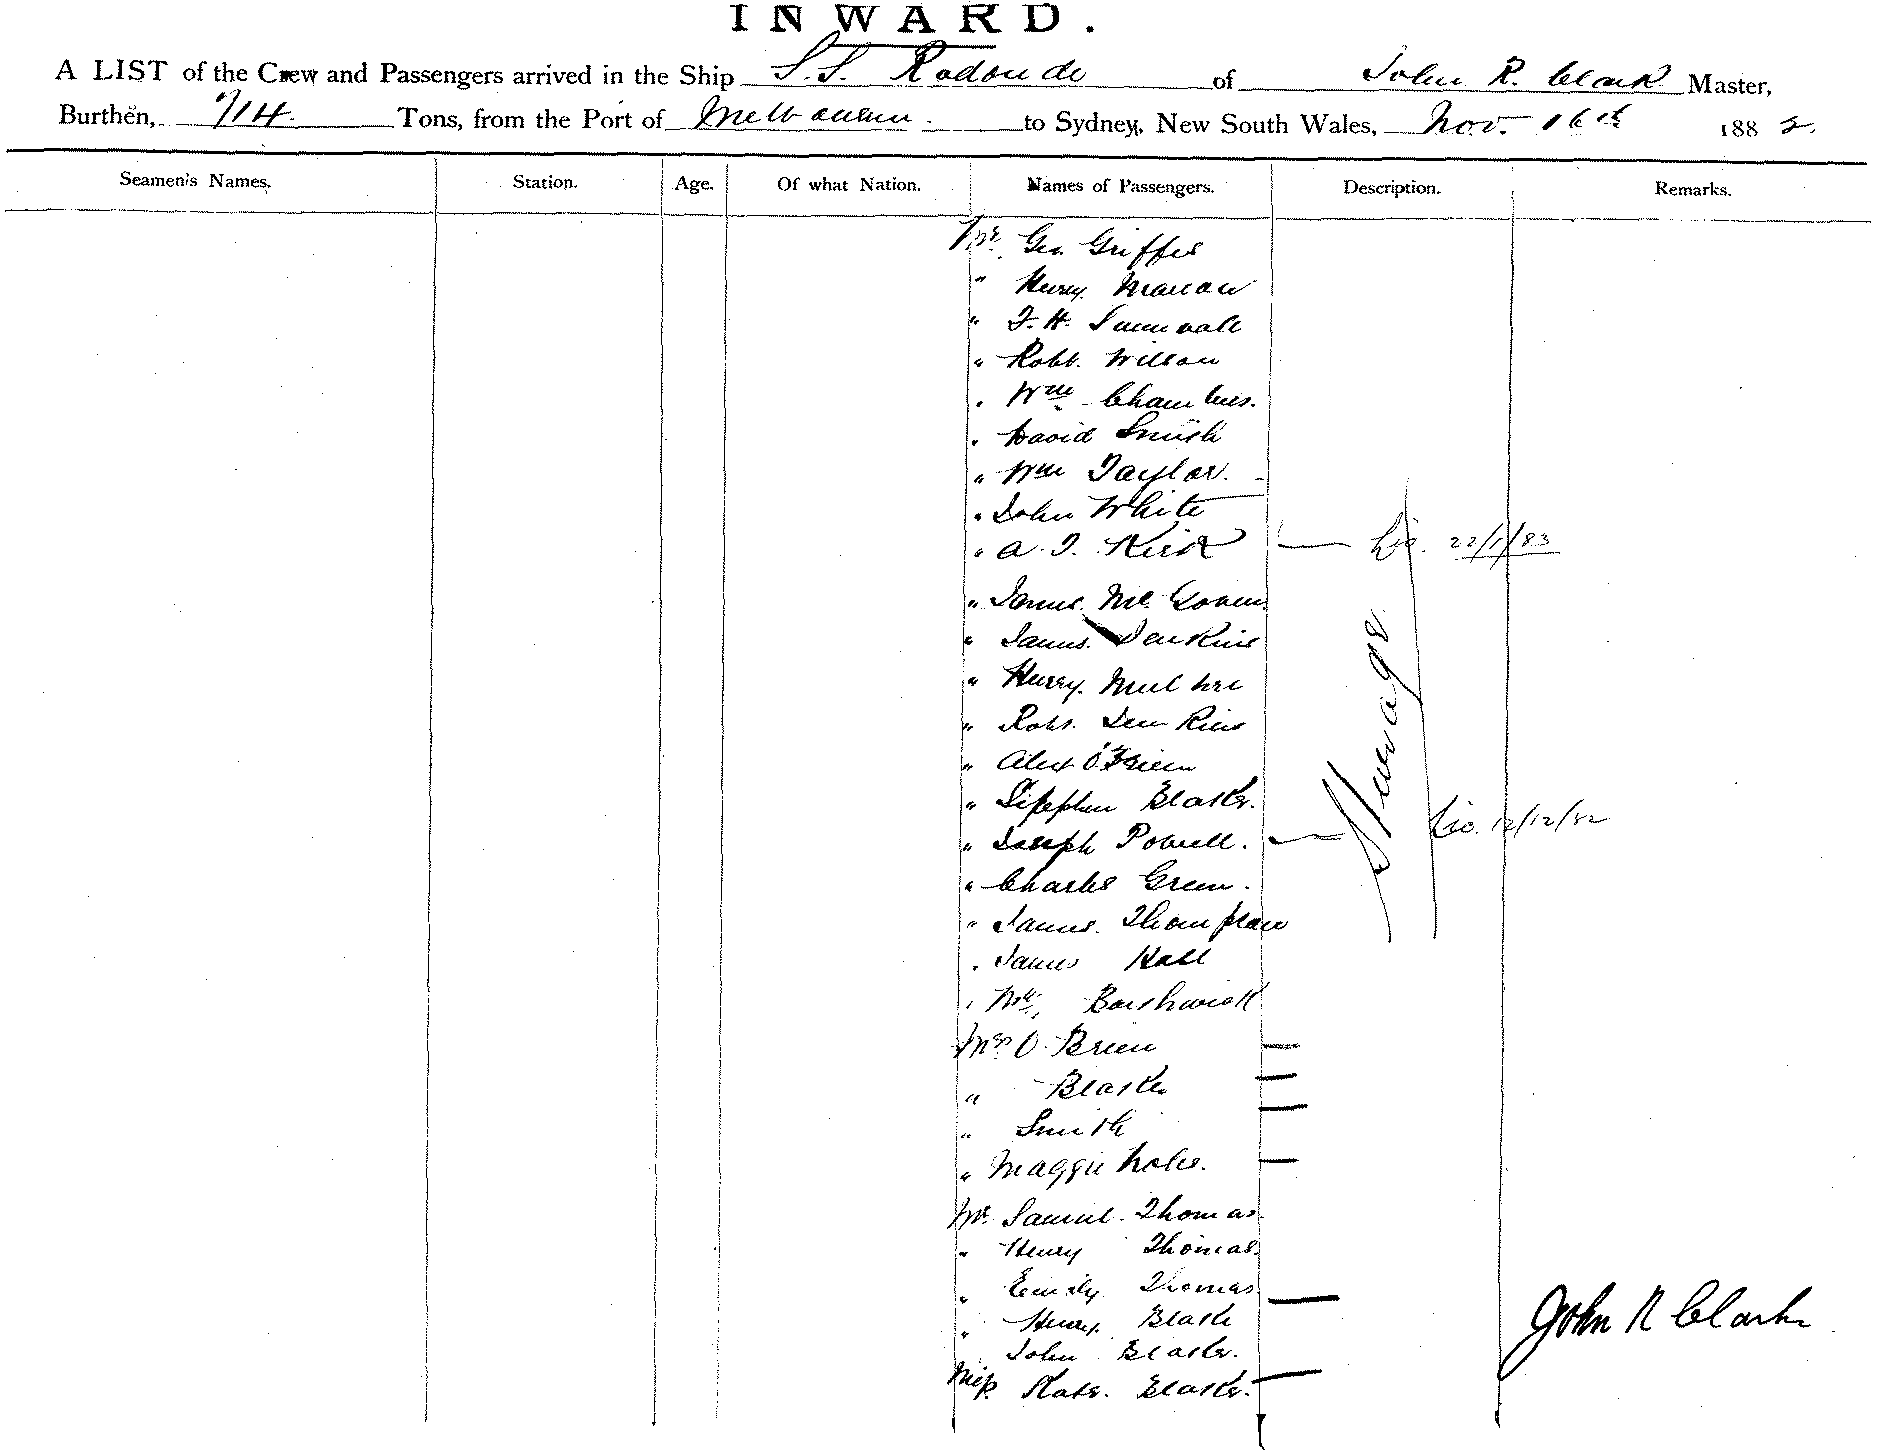 INWARD.
A LIST of the Crew and Passengers arrived in the Ship S.S. Rodondo of John R. Clark Master,
Burthen, 714 Tons, from the Port of Melbourne to Sydney, New South Wales, Nov. 16th 1882
Seamen's Names. Station. Age. Of what Nation. Names of Passengers. Description. Remarks.
Mr. Geo. Griffis
" Henry
" J. H.
" Robt. Wilson
" Wm Chambers.
" David Smith
" Wm Taylor.
" John White
" A. J. Kirk Lic. 22/1/83
" James Mc Govern
" James Jenkins
" Henry
" Robt. Jenkins
" Alex O'Brien
" Stephen Blake.
" Joseph Powell. Lic. 12/12/82
Steerage
" Charles Green.
" James Thompson
" James Hall
" Mr.
Mrs O'Brien
" Blake
" Smith
" Maggie
Mr. Samuel Thomas
" Henry Thomas
" Emily Thomas
" Henry Blake
John Blake.
Miss Kate Blake.
John R Clark